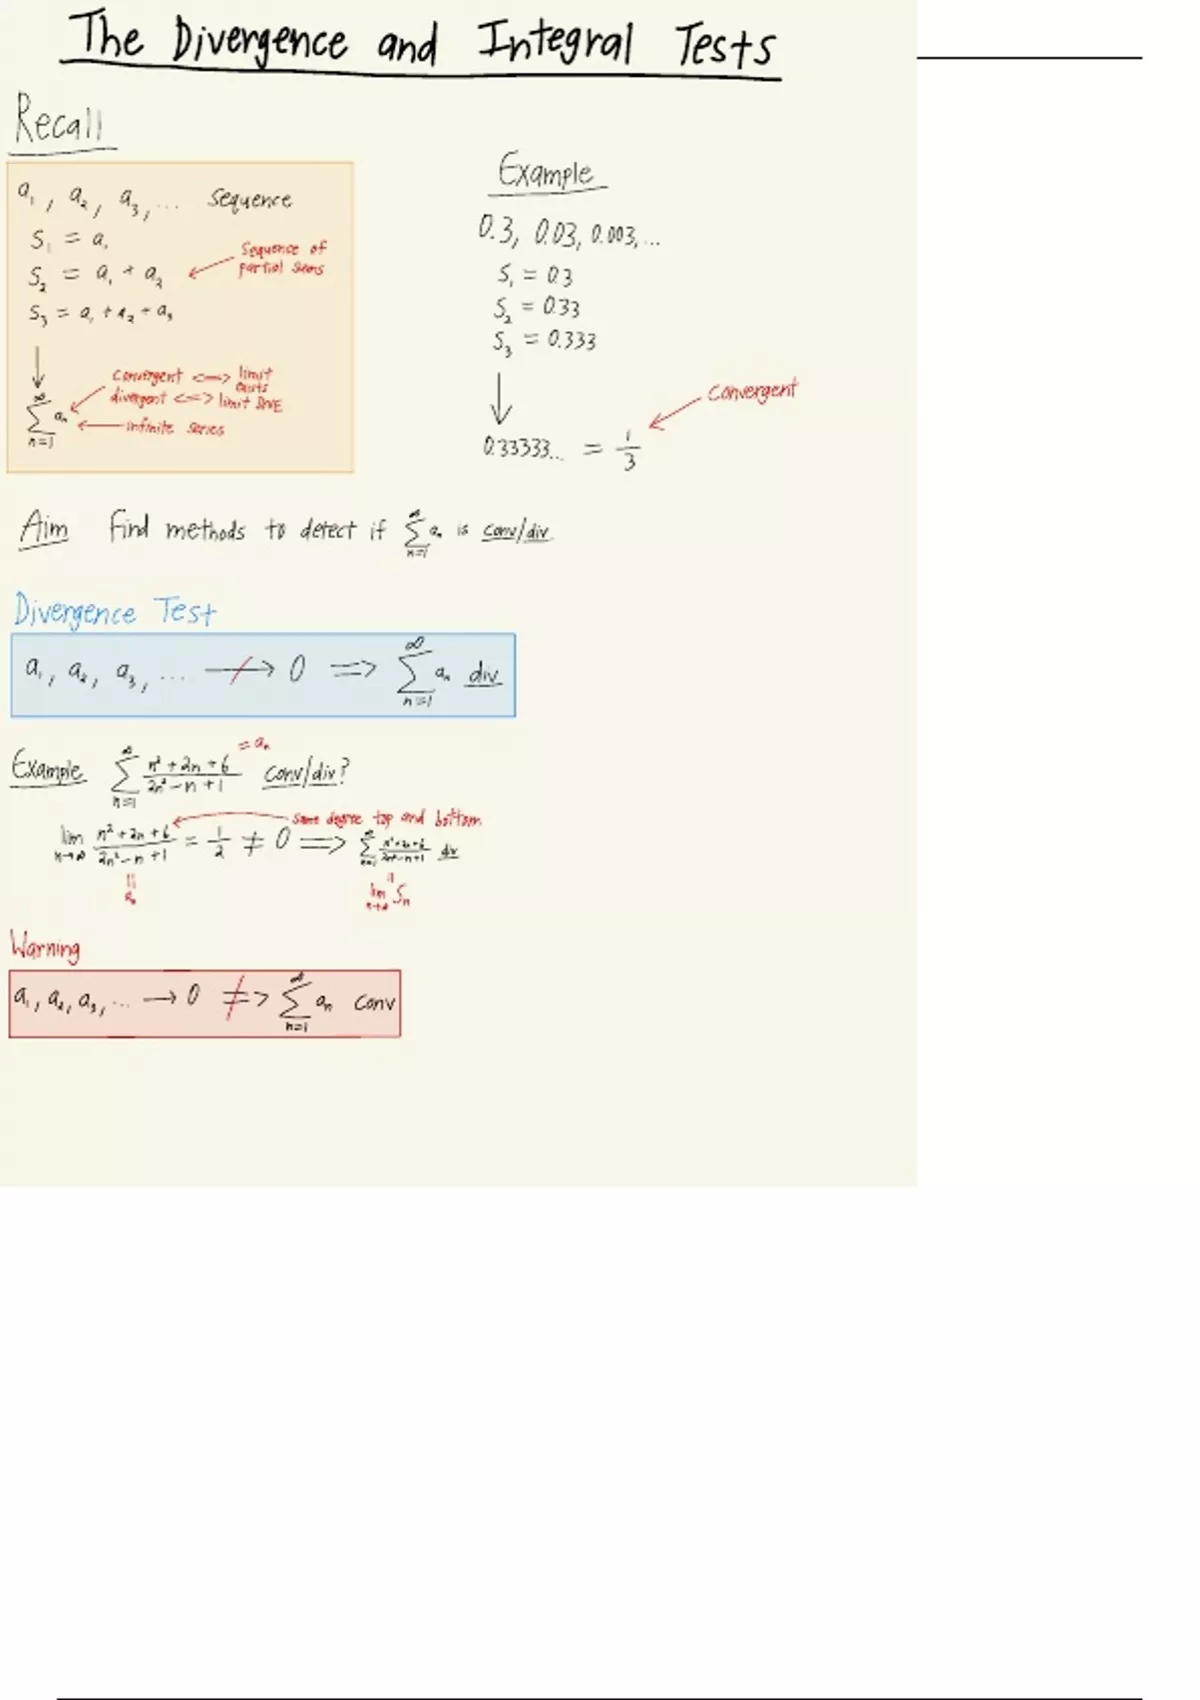 The Divergence and Integral Tests
Recall
a₁, a₂, a₃, ... Sequence
S₁ = a₁
S₂ = a₁ + a₂
Sequence of partial sums
S₃ = a₁ + a₂ + a₃
↓
∞
∑ aₙ
n=1
convergent <=> limit exists
divergent <=> limit DNE
infinite series
Example
0.3, 0.03, 0.003, ...
S₁ = 0.3
S₂ = 0.33
S₃ = 0.333
↓
0.33333... = 1/3
Convergent
Aim Find methods to detect if ∑_{n=1}^∞ aₙ is conv/div
Divergence Test
a₁, a₂, a₃, ... ↛ 0 => ∑_{n=1}^∞ aₙ div
Example ∑_{n=1}^∞ (n²+2n+6)/(2n²-n+1) = aₙ conv/div?
same degree top and bottom
lim_{n→∞} (n²+2n+6)/(2n²-n+1) = 1/2 ≠ 0 => ∑_{n=1}^∞ (n²+2n+6)/(2n²-n+1) div
= aₙ
= lim_{n→∞} Sₙ
Warning
a₁, a₂, a₃, ... → 0 ⇏ ∑_{n=1}^∞ aₙ conv